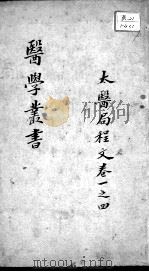 太醫局程文卷一之四
醫學叢書